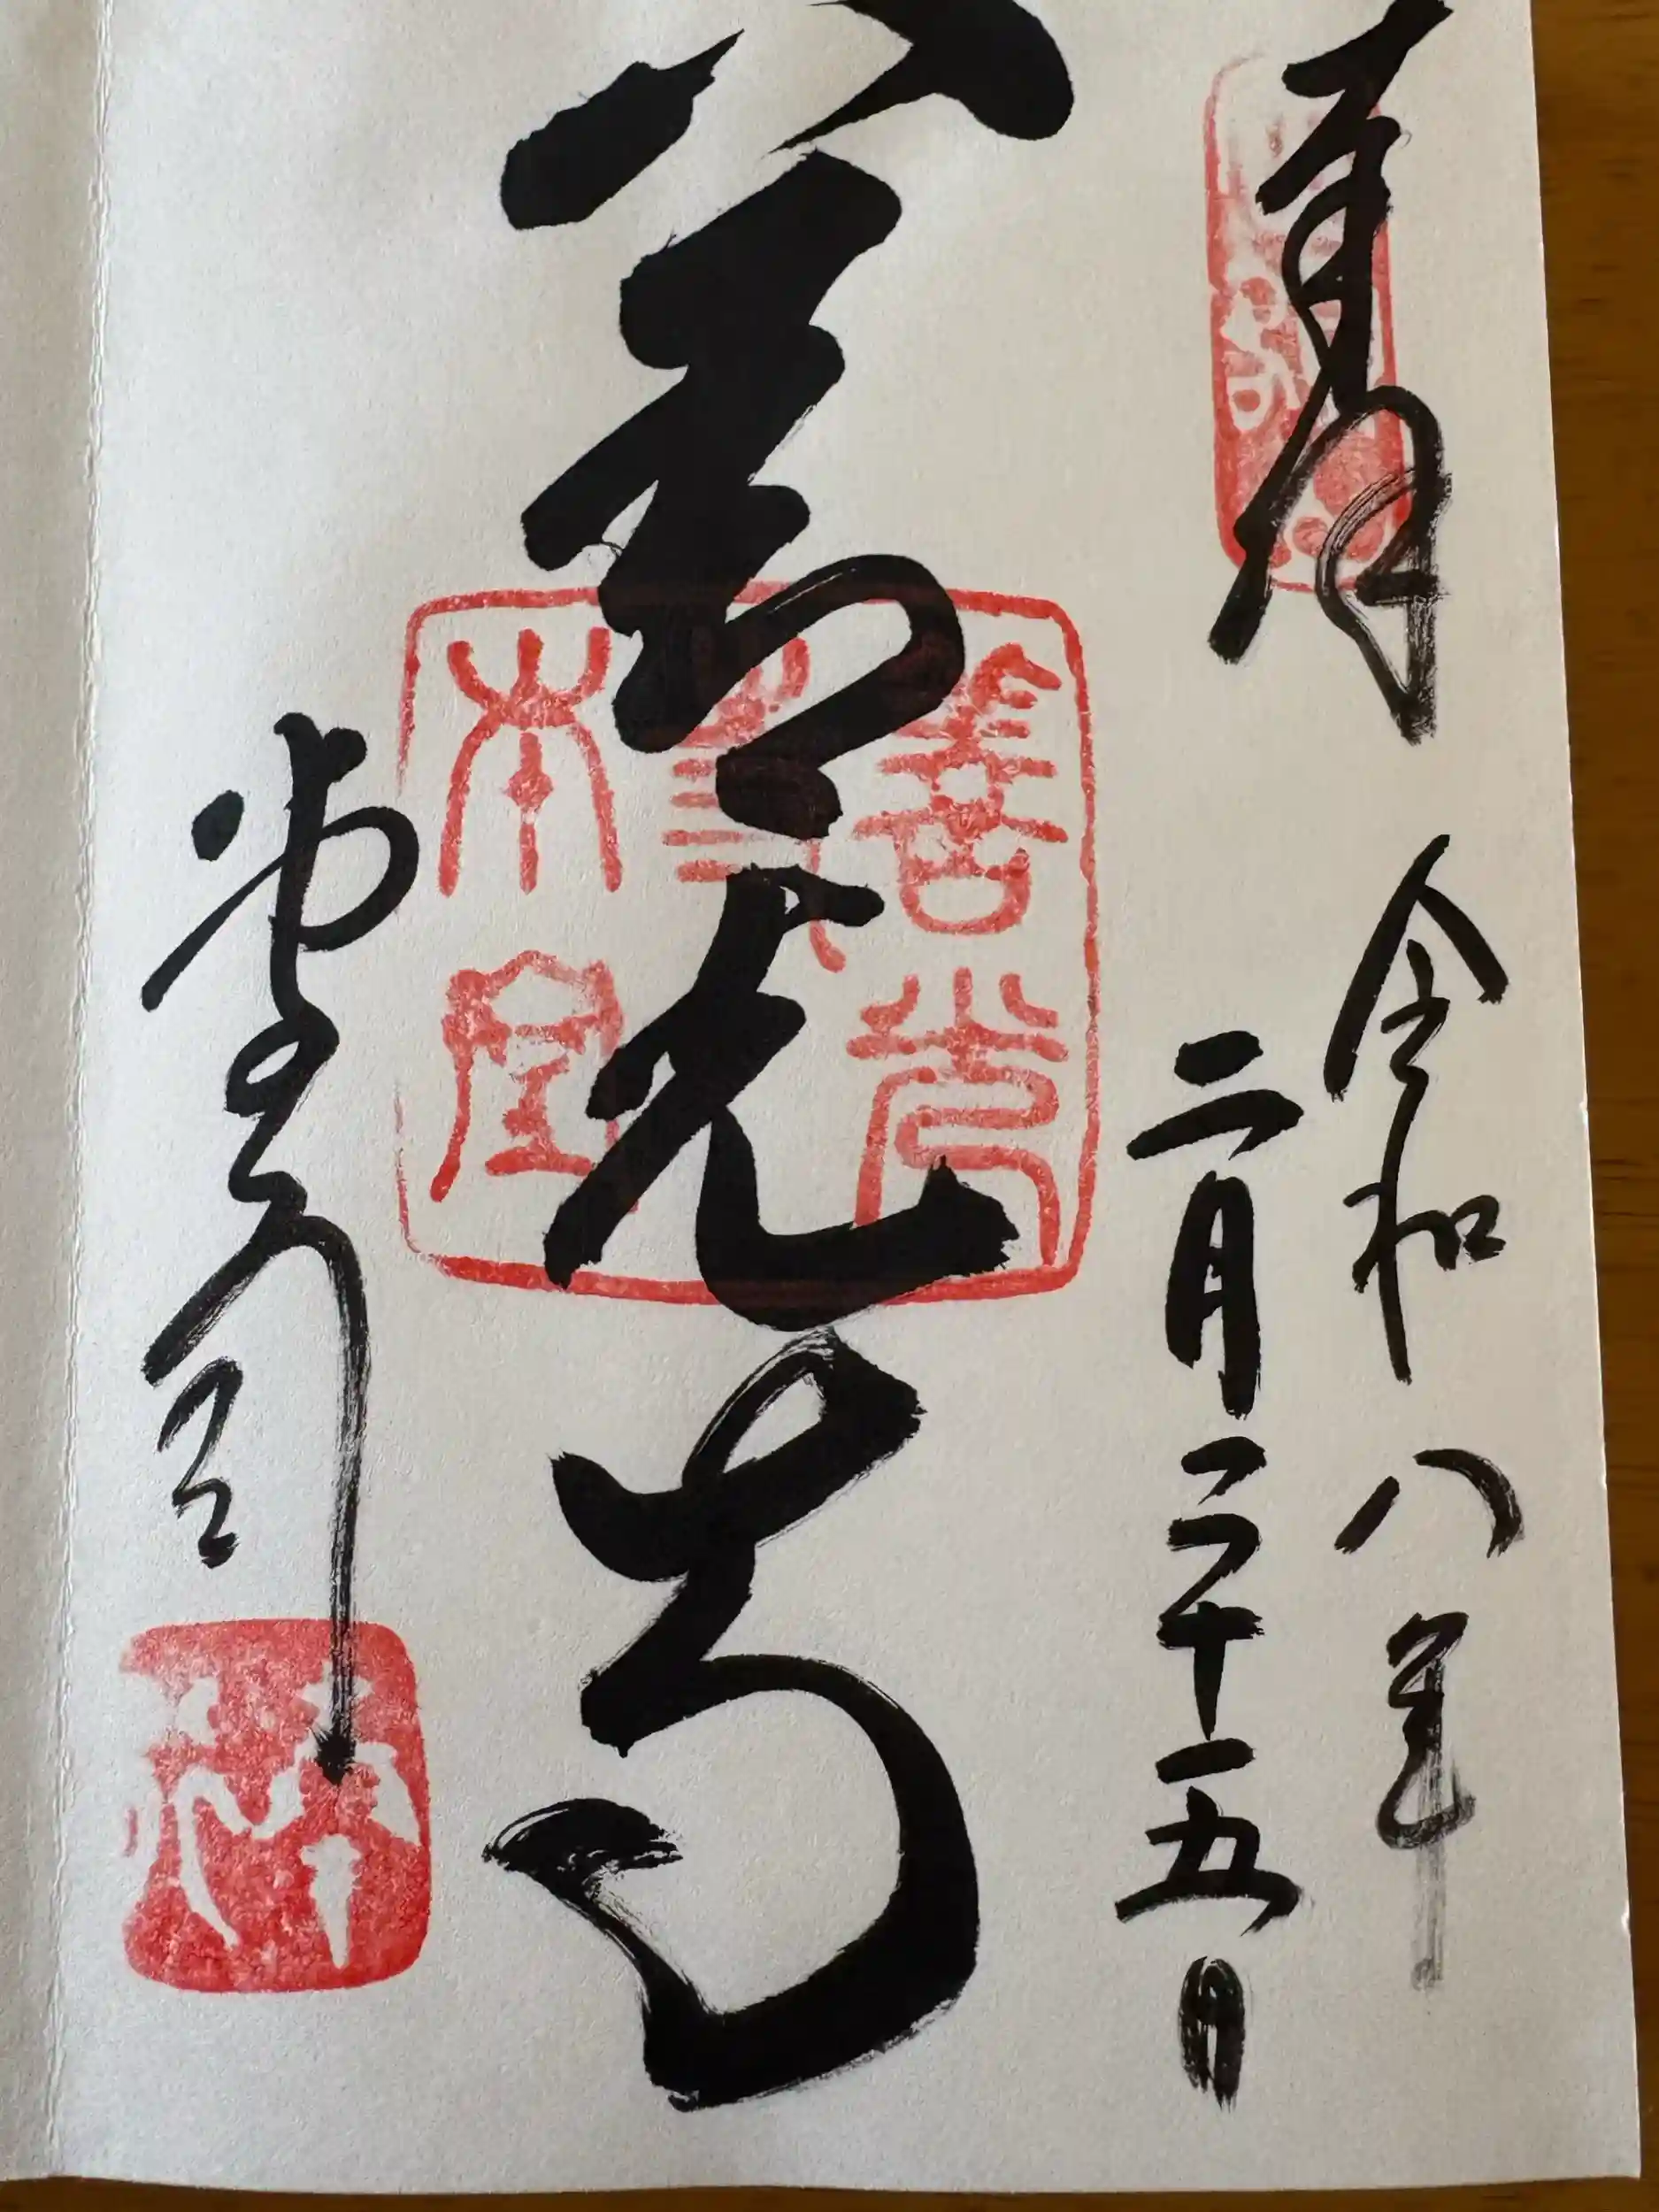 奉拝
令和八年
二月二十五日
善光寺
善光寺本堂
堂司